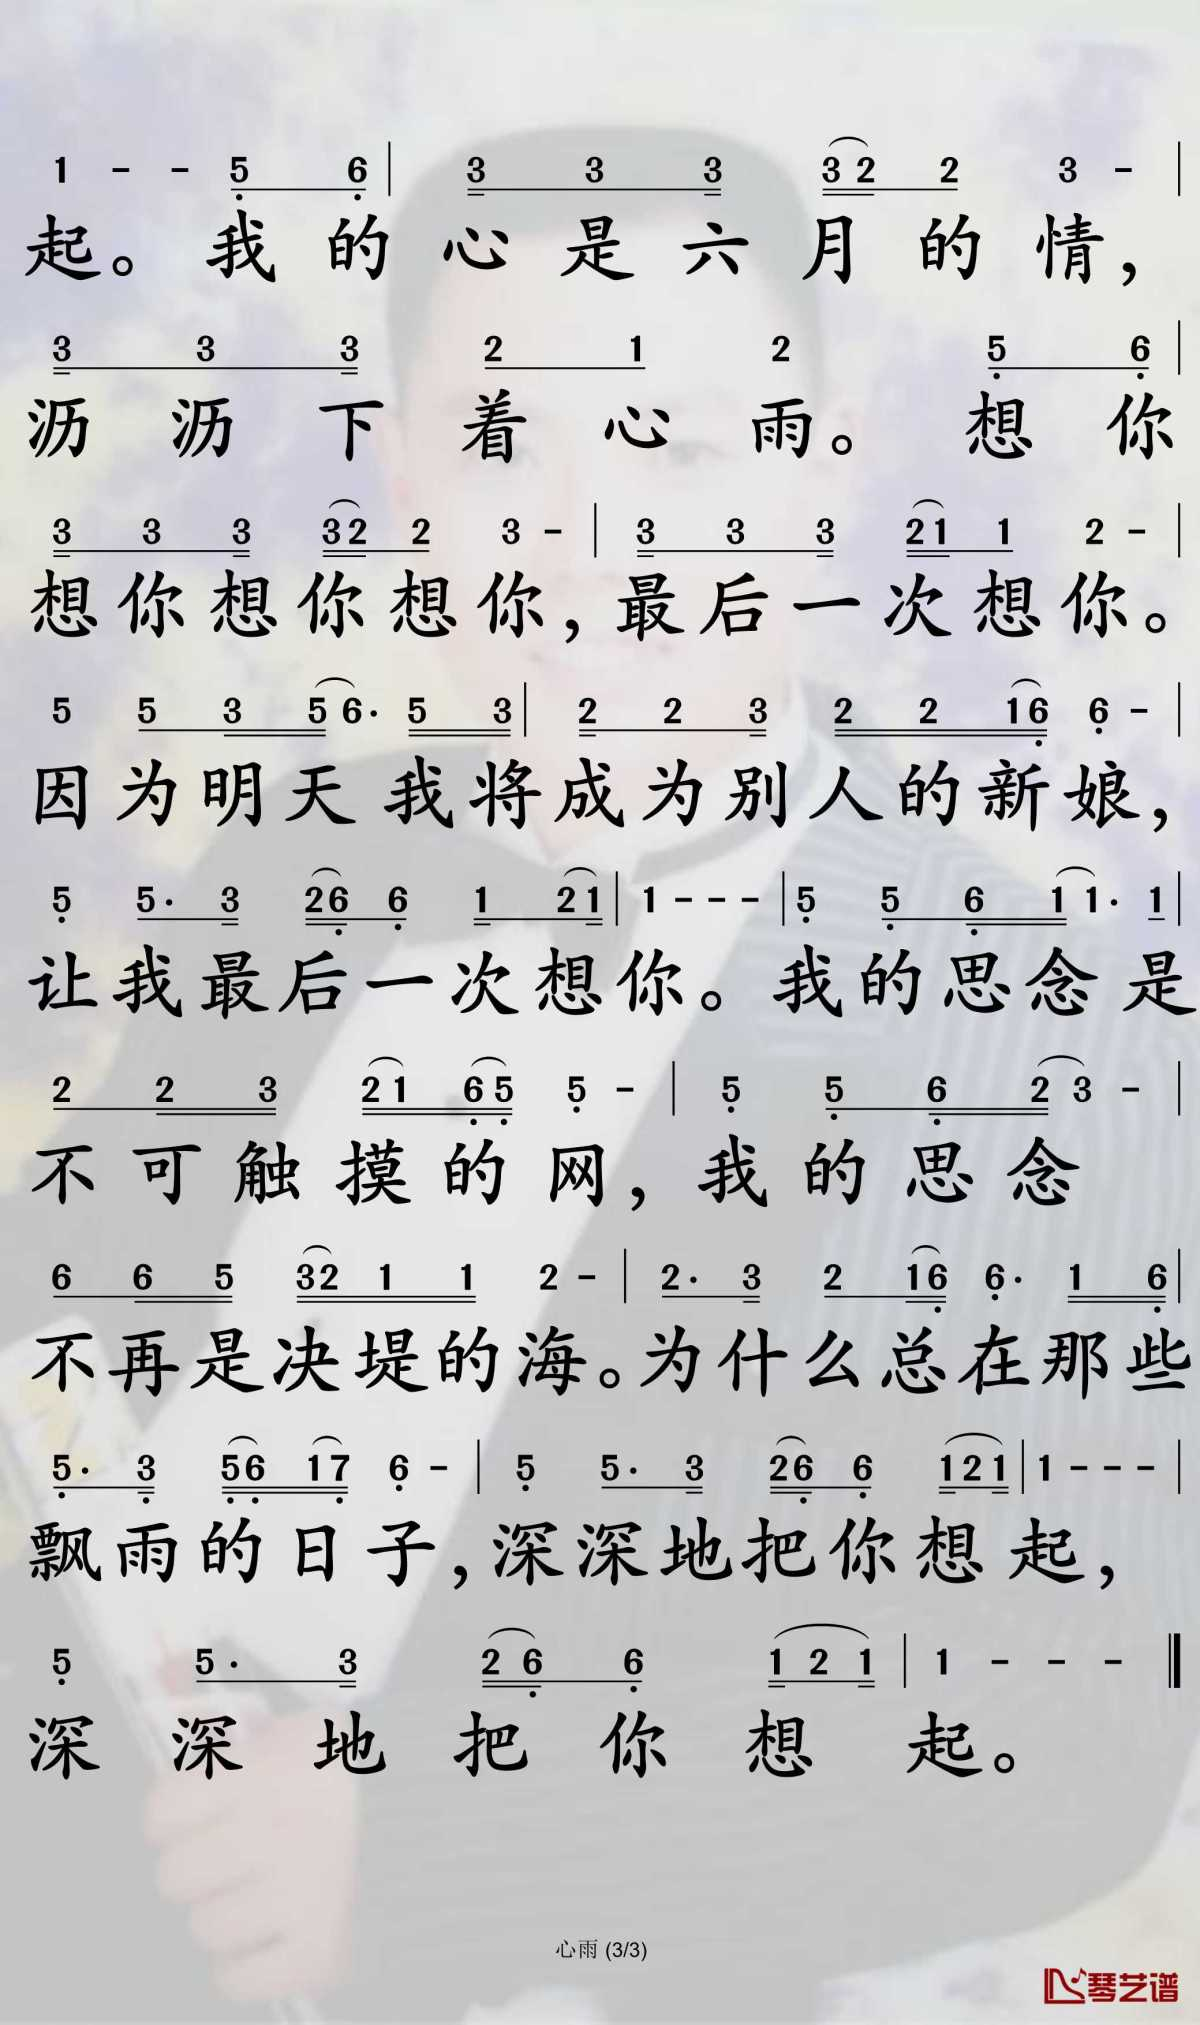 1 - - 5 6 | 3 3 3 3 2 2 3 - |
起。我的心是六月的情,
3 3 3 2 1 2 5 6 |
沥沥下着心雨。想你
3 3 3 3 2 2 3 - | 3 3 3 2 1 1 2 - |
想你想你想你,最后一次想你。
5 5 3 5 6· 5 3 | 2 2 3 2 2 1 6 6 - |
因为明天我将成为别人的新娘,
5 5· 3 2 6 6 1 2 1 | 1 - - - | 5 5 6 1 1· 1 |
让我最后一次想你。我的思念是
2 2 3 2 1 6 5 5 - | 5 5 6 2 3 - |
不可触摸的网,我的思念
6 6 5 3 2 1 1 2 - | 2· 3 2 1 6 6· 1 6 |
不再是决堤的海。为什么总在那些
5· 3 5 6 1 7 6 - | 5 5· 3 2 6 6 1 2 1 | 1 - - - |
飘雨的日子,深深地把你想起,
5 5· 3 2 6 6 1 2 1 | 1 - - - ‖
深深地把你想起。
心雨 (3/3)
琴艺谱